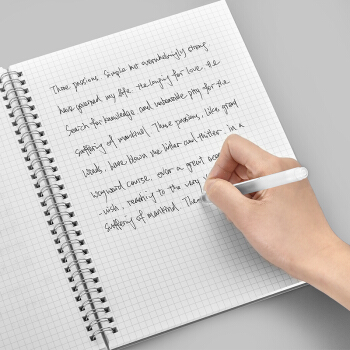 Three passions. Simple but overwhelmingly strong
have governed my life. the longing for love, the
Search for knowledge, and unbearable pity for the
suffering of mankind. These passions, like great
winds, have blown me hither and thither, in a
wayward course, over a great
-uish, reaching to the very
suffering of mankind. The